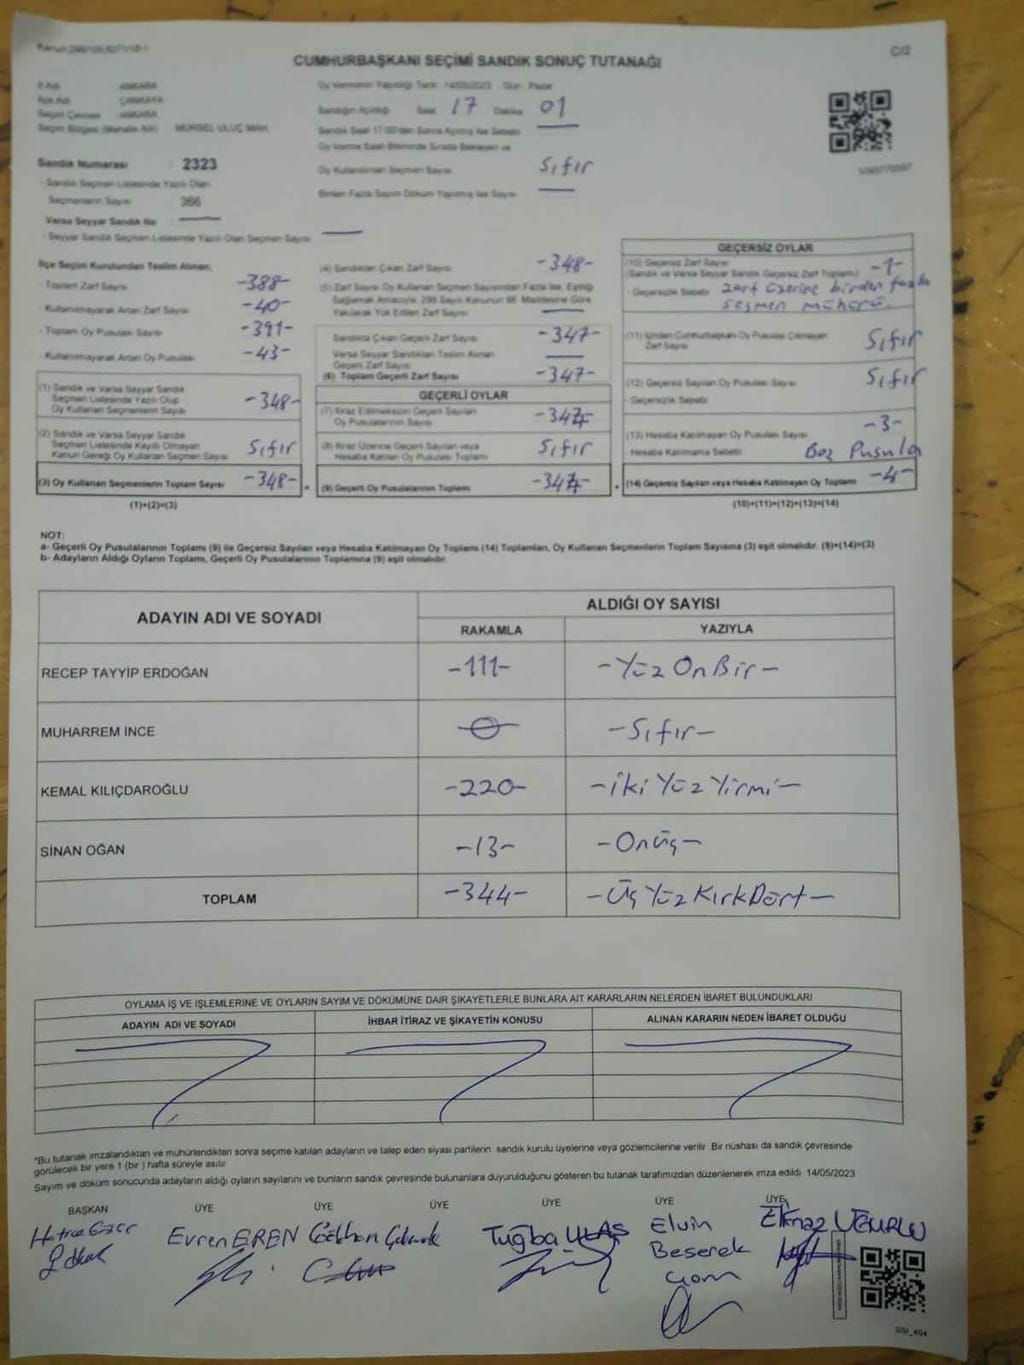 C/2
CUMHURBAŞKANI SEÇİMİ SANDIK SONUÇ TUTANAĞI
İl Adı : ANKARA
İlçe Adı : ÇANKAYA
Seçim Çevresi : ANKARA
Seçim Bölgesi (Mahalle Adı) : MÜRSEL ULUÇ MAH.
Sandık Numarası : 2323
- Sandık Seçmen Listesinde Yazılı Olan
Seçmenlerin Sayısı : 366
Varsa Seyyar Sandık No :
- Seyyar Sandık Seçmen Listesinde Yazılı Olan Seçmen Sayısı
Oy Vermenin Yapıldığı Tarih 14/05/2023 Gün Pazar
Sandığın Açıldığı Saat 17 Dakika 01
Sandık Saat 17:00'den Sonra Açılmış İse Sebebi
Oy Verme Saati Bitiminde Sırada Bekleyen ve
Oy Kullandırılan Seçmen Sayısı Sıfır
Birden Fazla Sayım Döküm Yapılmış İse Sayısı
İlçe Seçim Kurulundan Teslim Alınan;
- Toplam Zarf Sayısı -388-
- Kullanılmayarak Artan Zarf Sayısı -40-
- Toplam Oy Pusulası Sayısı -391-
- Kullanılmayarak Artan Oy Pusulası -43-
(1) Sandık ve Varsa Seyyar Sandık
Seçmen Listesinde Yazılı Olup
Oy Kullanan Seçmenlerin Sayısı -348-
(2) Sandık ve Varsa Seyyar Sandık
Seçmen Listesinde Kayıtlı Olmayan
Kanun Gereği Oy Kullanan Seçmen Sayısı Sıfır
(3) Oy Kullanan Seçmenlerin Toplam Sayısı -348-
(1)+(2)=(3)
(4) Sandıktan Çıkan Zarf Sayısı -348-
(5) Zarf Sayısı Oy Kullanan Seçmen Sayısından Fazla İse, Eşitliği
Sağlamak Amacıyla, 298 Sayılı Kanunun 98. Maddesine Göre
Yakılarak Yok Edilen Zarf Sayısı
Sandıkta Çıkan Geçerli Zarf Sayısı -347-
Varsa Seyyar Sandıktan Teslim Alınan
Geçerli Zarf Sayısı
(6) Toplam Geçerli Zarf Sayısı -347-
GEÇERLİ OYLAR
(7) İtiraz Edilmeksizin Geçerli Sayılan
Oy Pusulalarının Sayısı
(8) İtiraz Üzerine Geçerli Sayılan veya
Hesaba Katılan Oy Pusulası Toplamı Sıfır
(9) Geçerli Oy Pusulalarının Toplamı
GEÇERSİZ OYLAR
(10) Geçersiz Zarf Sayısı -1-
(Sandık ve Varsa Seyyar Sandık Geçersiz Zarf Toplamı)
- Geçersizlik Sebebi zarf üzerine birden fazla
seçmen mührü.
(11) İçinden Cumhurbaşkanı Oy Pusulası Çıkmayan
Zarf Sayısı Sıfır
(12) Geçersiz Sayılan Oy Pusulası Sayısı Sıfır
- Geçersizlik Sebebi
(13) Hesaba Katılmayan Oy Pusulası Sayısı -3-
- Hesaba Katılmama Sebebi Boz Pusula
(14) Geçersiz Sayılan veya Hesaba Katılmayan Oy Toplamı -4-
(10)+(11)+(12)+(13)=(14)
NOT:
a- Geçerli Oy Pusulalarının Toplamı (9) ile Geçersiz Sayılan veya Hesaba Katılmayan Oy Toplamı (14) Toplamları, Oy Kullanan Seçmenlerin Toplam Sayısına (3) eşit olmalıdır. (9)+(14)=(3)
b- Adayların Aldığı Oyların Toplamı, Geçerli Oy Pusulalarının Toplamına (9) eşit olmalıdır.
ADAYIN ADI VE SOYADI
ALDIĞI OY SAYISI
RAKAMLA YAZIYLA
RECEP TAYYİP ERDOĞAN -111- -Yüz On Bir-
MUHARREM İNCE -0- -Sıfır-
KEMAL KILIÇDAROĞLU -220- -İki Yüz Yirmi-
SİNAN OĞAN -13- -Onüç-
TOPLAM -344- -Üç Yüz Kırk Dört-
OYLAMA İŞ VE İŞLEMLERİNE VE OYLARIN SAYIM VE DÖKÜMÜNE DAİR ŞİKAYETLERLE BUNLARA AİT KARARLARIN NELERDEN İBARET BULUNDUKLARI
ADAYIN ADI VE SOYADI İHBAR İTİRAZ VE ŞİKAYETİN KONUSU ALINAN KARARIN NEDEN İBARET OLDUĞU
*Bu tutanak imzalandıktan ve mühürlendikten sonra seçime katılan adayların ve talep eden siyasi partilerin sandık kurulu üyelerine veya gözlemcilerine verilir. Bir nüshası da sandık çevresinde
görülecek bir yere 1 (bir) hafta süreyle asılır.
Sayım ve döküm sonucunda adayların aldığı oyların sayılarını ve bunların sandık çevresinde bulunanlara duyurulduğunu gösteren bu tutanak tarafımızdan düzenlenerek imza edildi. 14/05/2023
BAŞKAN ÜYE ÜYE ÜYE ÜYE ÜYE ÜYE
Evren EREN Gökhan Tuğba ULAŞ Elvin
Beserek
Elmaz UĞURLU